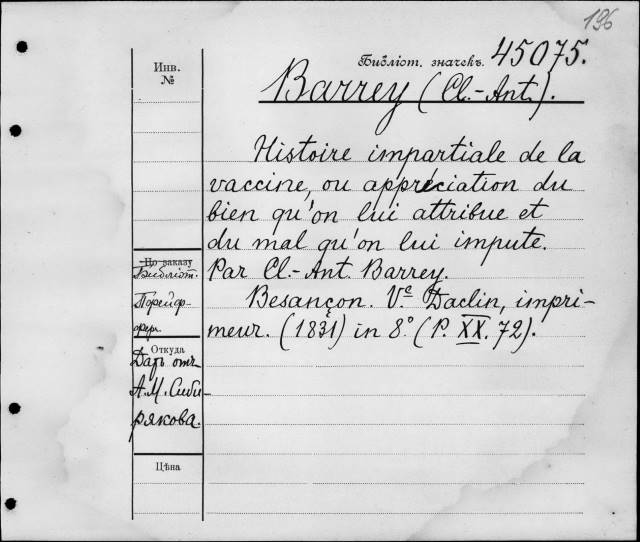 196
Инв.
№
Бібліот. значекъ. 45075.
Barrey (Cl.-Ant.).
Histoire impartiale de la
vaccine, ou appréciation du
bien qu'on lui attribue et
du mal qu'on lui impute.
Par Cl.-Ant. Barrey.
Besançon. Ve Daclin, impri-
meur. (1831) in 8° (P. XX. 72).
По заказу
Библіот.
Откуда
Даръ отъ
А. М. Сиби-
рякова.
Цѣна